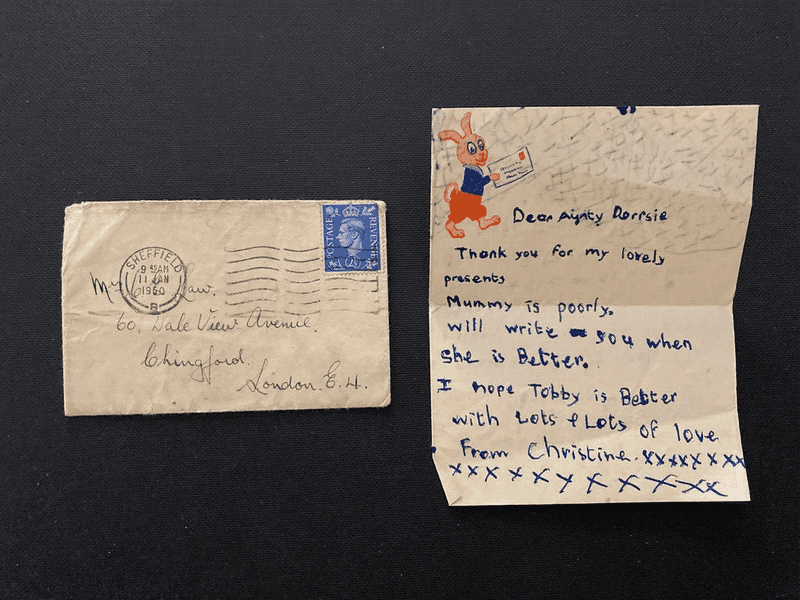 POSTAGE REVENUE
2½d
SHEFFIELD
9 15AM
11 JAN
1950
60, Dale View Avenue.
Chingford.
London. E.4.
Dear Aunty Dorrsie
Thank you for my lovely
presents
Mummy is poorly.
will write you when
she is Better.
I hope Tobby is Better
with Lots & Lots of love
From Christine. xxxxx x xx
xxx x x x x x x xx